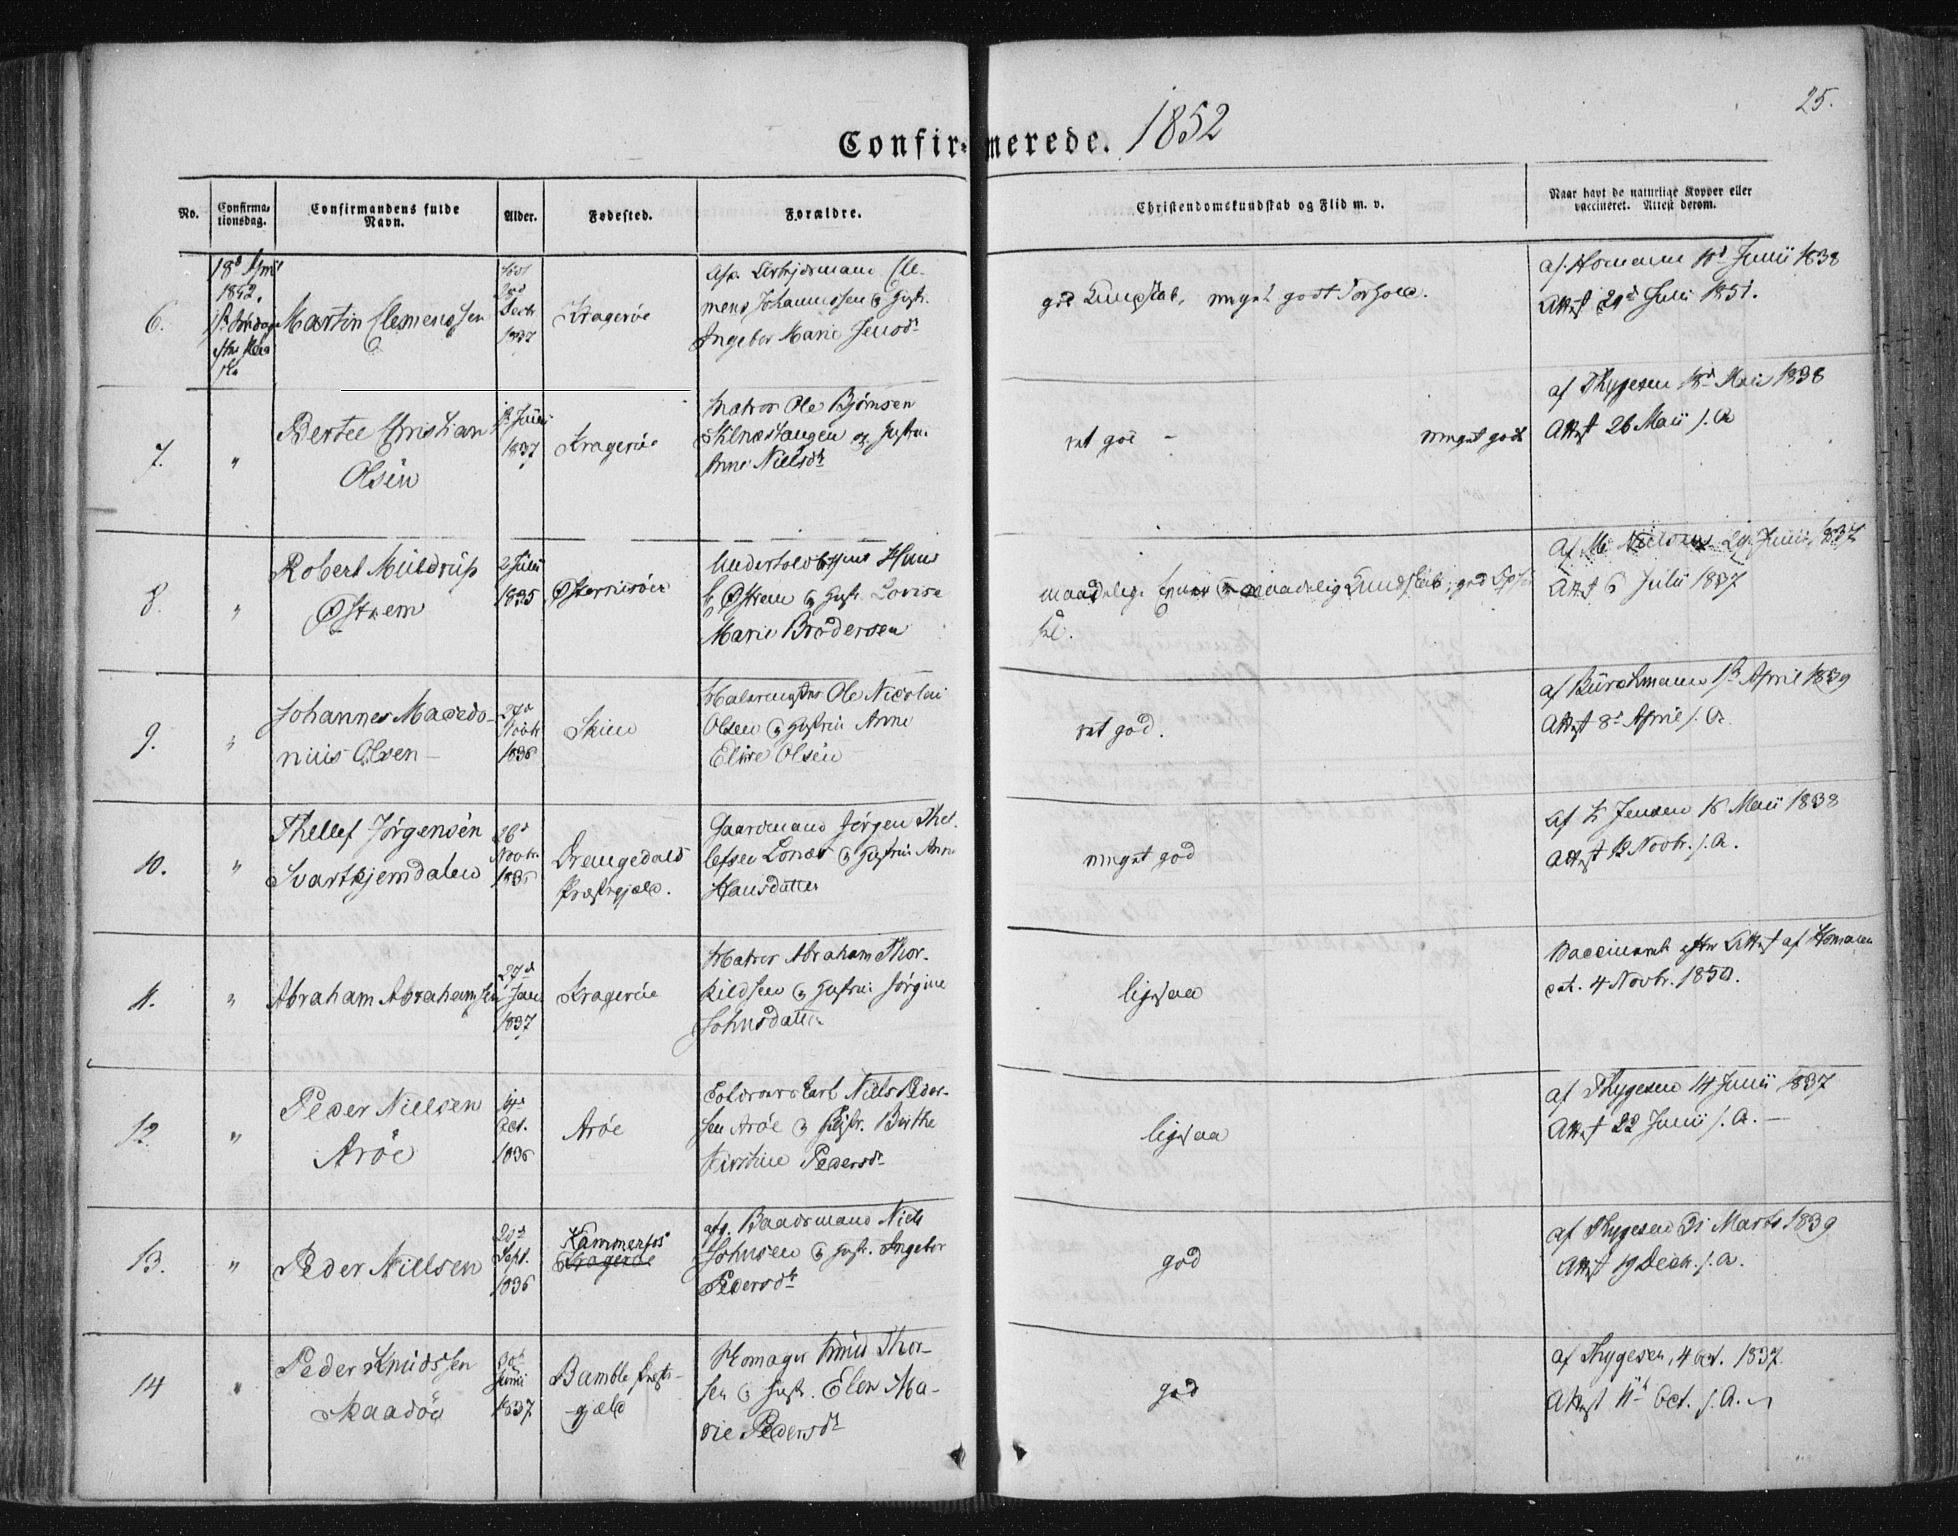 25.
Confirmerede. 1852
No.
Confirma-
tionsdag.
Confirmandens fulde
Navn.
Alder.
Fødested.
Forældre.
Christendomskundskab og Flid m. v.
Naar havt de naturlige Kopper eller
vaccineret. Attest derom.
6.
18de April
1852.
Martin Clemenssen
født
2den
Decbr
1837
Kragerøe
Cle-
mens Johannessen & Hustr.
Ingebor Marie Jensdr
god Kundskab, meget godt Forhold.
af Homann 11te Junii 1838
Attest 21de Julii 1851.
7.
"
Bertel Christian
Olsen
Junii
1837
Kragerøe
Matros Ole Bjørnsen
og Hustru
Anne Nielsdr
ret god -
meget godt
af Thygesen 18de Mai 1838
Attest 26 Maii s. A
8.
"
Robert Mildrup
Østrem
2 Julii
1835
Østerriisøer
Undertoldbetjent Hans
Østrem & Hustr. Lovise
Marie Brodersen
maadelig Kundskab; god Opfør
sel.
af Nielsen 29 Junii 1837
Attest 6 Julii 1837
9.
"
Johannes Macedo-
nius Olsen -
27de
Novbr
1836
Skien
Malermester Ole Nicolai
Olsen & Hustru Anne
Elise Olsen
ret god.
af Bürchmann 1ste April 1839
Attest 8de April s. A.
10.
"
Thellef Jørgensen
Svartkjerndalen
26de
Novbr.
1836
Drangedals
Præstegjæld.
Gaardmand Jørgen Thel-
lefsen Lonær & Hustru Anne
Hansdatter
meget god
af Jensen 16 Maii 1838
Attest 12 Novbr. s. A.
11.
"
Abraham Abrahamsen
27de
Janu
1837
Kragerøe
Matros Abraham Thor-
kildsen & Hustru Jørgine
Johnsdatter
ligesaa
Vaccineret efter Attest af Homann
dat. 4 Novbr. 1850.
12.
"
Peder Nielsen
Arøe
Oct.
1836
Arøe
Niels Peder-
sen Arøe & Hustr. Berthe
Kirstine Pedersdr
ligesaa
af Thygesen 14 Junii 1837
Attest 22 Junii s. A. -
13.
"
Peder Nielsen
20de
Sept.
1836
Kammerfos
Kragerøe
afg. Baadsmand Niels
Johnsen & Hustr. Ingebor
Pedersdr
god
af Thygesen 31 Marts 1839
Attest 19 Decbr. s. A.
14
"
Peder Knudssen
Skaadøe
30te
Junii
1837.
Bamble Præste-
gjæld
Skomager Knud Thor-
sen & Hustr. Elen Ma-
rie Pedersdr
god
af Thygesen, 4 Oct. 1837.
Attest 11te Oct. s. A.